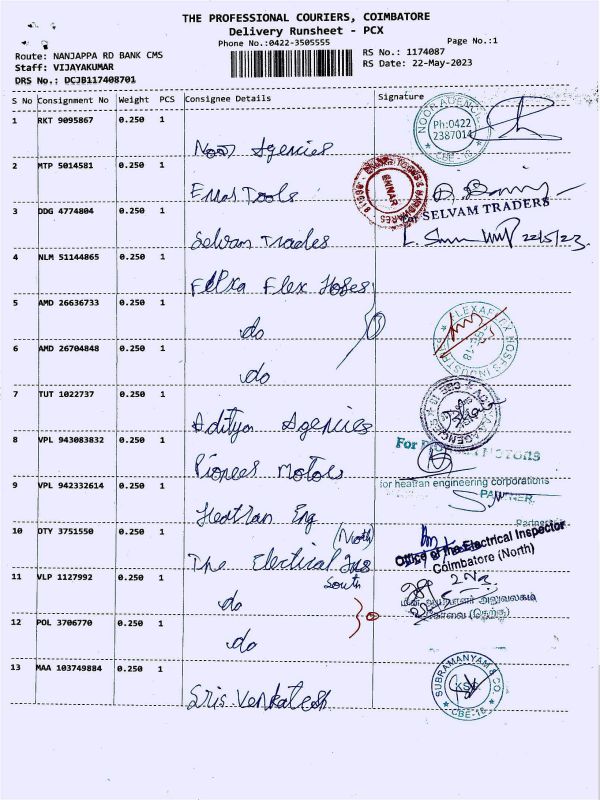 THE PROFESSIONAL COURIERS, COIMBATORE
Delivery Runsheet - PCX
Phone No.:0422-3505555
Page No.:1
Route: NANJAPPA RD BANK CMS
RS No.: 1174087
Staff: VIJAYAKUMAR
RS Date: 22-May-2023
DRS No.: DCJB117408701
S No Consignment No Weight PCS Consignee Details Signature
1 RKT 9095867 0.250 1
Noor Agencies
NOOR AGENCIES Ph:0422 2387014 CBE-18
2 MTP 5014581 0.250 1
Tools
ENNAR
3 DDG 4774804 0.250 1
Selvam Trades
For SELVAM TRADERS
22/5/23
4 NLM 51144865 0.250 1
Flex Hoses
5 AMD 26636733 0.250 1
do
6 AMD 26704848 0.250 1
do
7 TUT 1022737 0.250 1
Aditya Agencies
8 VPL 943083832 0.250 1
Pioneer Motors
For MOTORS
9 VPL 942332614 0.250 1
Heatran Eng
for heatran engineering corporations
PARTNER
10 DTY 3751550 0.250 1
The Electrical Ins (North)
Office of the Electrical Inspector
Coimbatore (North)
11 VLP 1127992 0.250 1
do South
அலுவலகம்
கோவை (தெற்கு)
12 POL 3706770 0.250 1
do
13 MAA 103749884 0.250 1
Sris. Venkatesh
SUBRAMANYAM & CO CBE-18